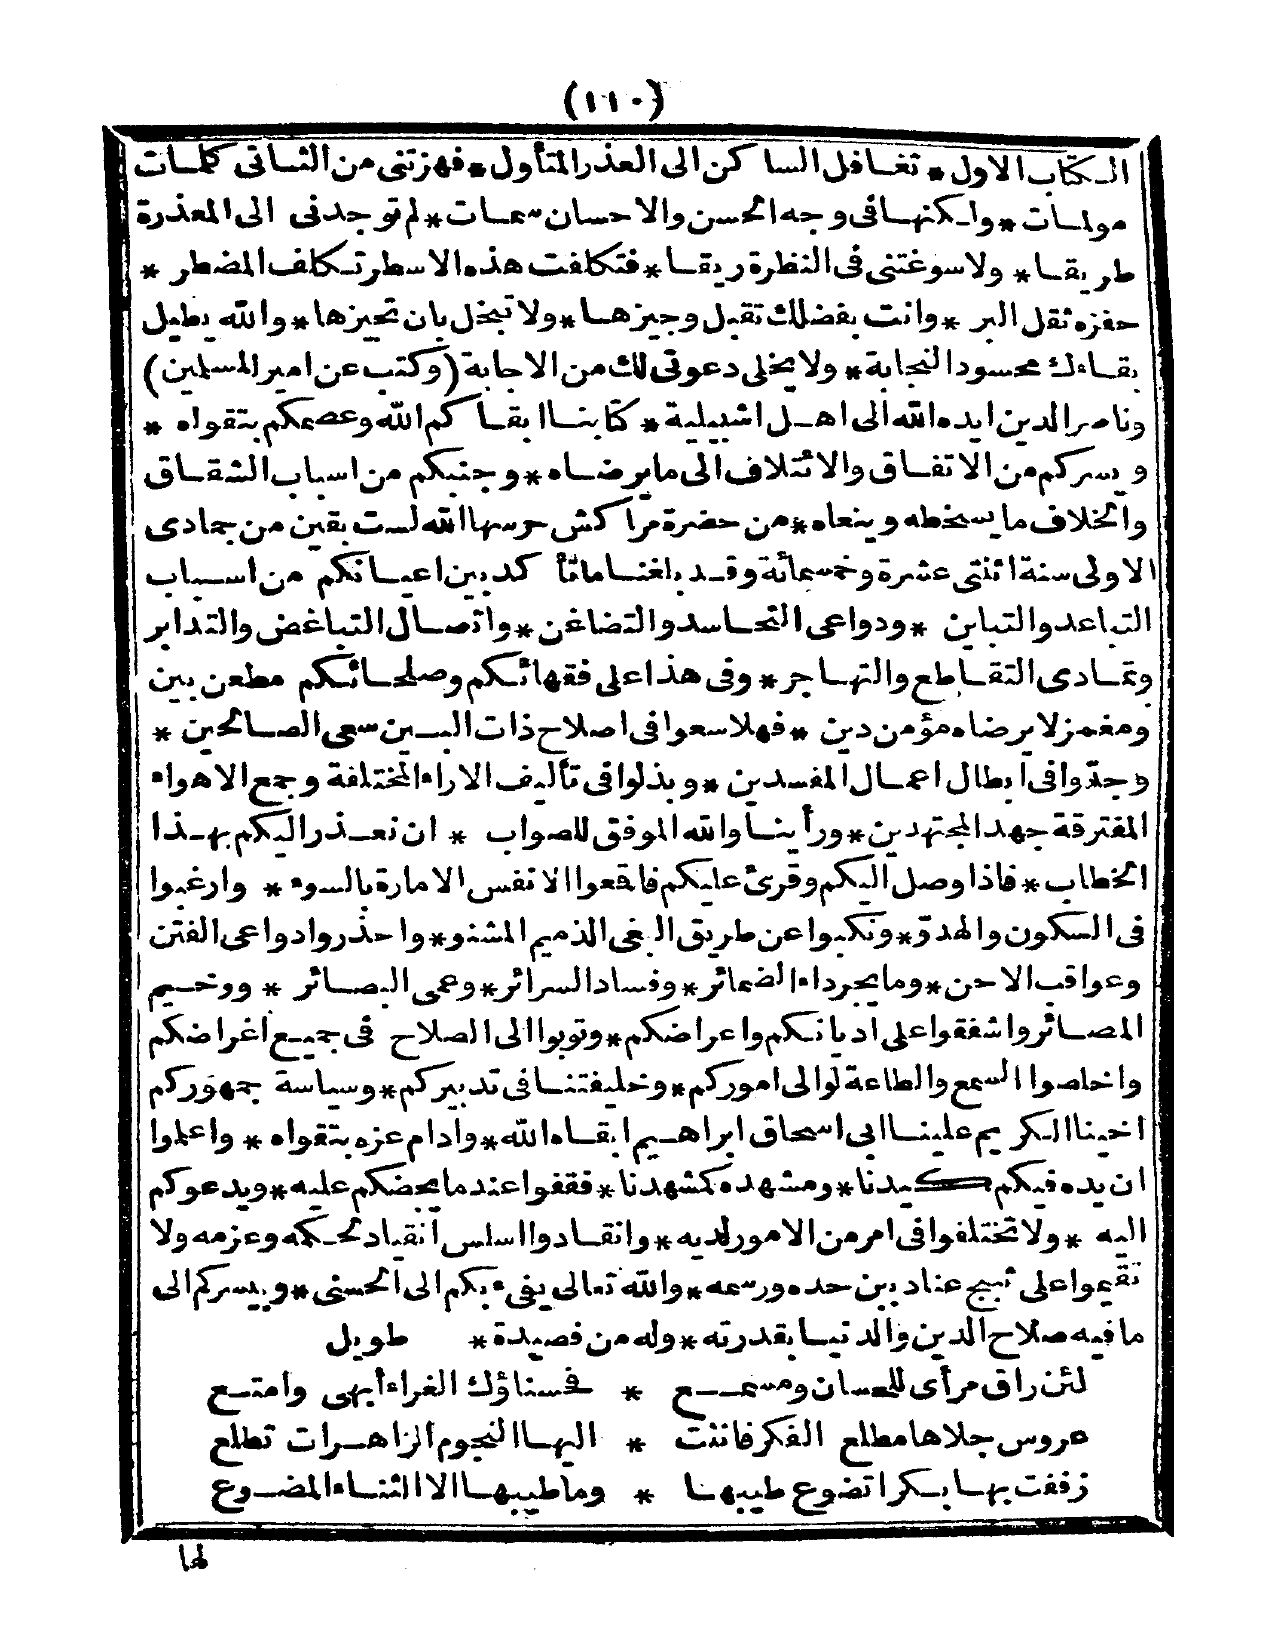 (١١٠)
الكتاب الاول * تغافل الساكن الى العذر المتأول * فهزتنى من الثانى كلمات
مولمات * ولكنها فى وجه الحسن والاحسان سمات * لم توجدنى الى المعذرة
طريقا * ولا سوغتنى فى النظرة ريقا * فتكلفت هذه الاسطر تكلف المضطر *
حفزه ثقل البر * وانت بفضلك تقبل وجيزها * ولا تبخل بان تجيزها * والله يطيل
بقاءك محسود النجابة * ولا يخلى دعوتى لك من الاجابة (وكتب عن امير المسلمين)
وناصر الدين ايده الله الى اهل اشبيلية * كتابنا ابقاكم الله وعصمكم بتقواه *
ويسركم من الاتفاق والائتلاف الى ما يرضاه * وجنبكم من اسباب الشقاق
والخلاف ما يسخطه وينعاه * من حضرة مراكش حرسها الله لست بقين من جمادى
الاولى سنة اثنتى عشرة وخمسمائة وقد بلغنا ما تأكد بين اعيانكم من اسباب
التباعد والتباين * ودواعى التحاسد والتضاغن * واتصال التباغض والتدابر
وتمادى التقاطع والتهاجر * وفى هذا على فقهائكم وصلحائكم مطعن بين
ومغمز لا يرضاه مؤمن دين * فهلا سعوا فى اصلاح ذات البين سعى الصالحين *
وجدّوا فى ابطال اعمال المفسدين * وبذلوا فى تأليف الاراء المختلفة وجمع الاهواء
المفترقة جهد المجتهدين * ورأينا والله الموفق للصواب * ان نعذر اليكم بهذا
الخطاب * فاذا وصل اليكم وقرئ عليكم فاقمعوا الانفس الامارة بالسوء * وارغبوا
فى السكون والهدوّ * ونكبوا عن طريق البغى الذميم المشنو * واحذروا دواعى الفتن
وعواقب الاحن * وما يجر داء الضمائر * وفساد السرائر * وعمى البصائر * ووخيم
المصائر واشفقوا على أديانكم واعراضكم * وتوبوا الى الصلاح فى جميع أغراضكم
واخلصوا السمع والطاعة لوالى اموركم * وخليفتنا فى تدبيركم * وسياسة جمهوركم
اخينا الكريم علينا ابى اسحاق ابراهيم ابقاه الله * وأدام عزه بتقواه * واعلموا
ان يده فيكم كيدنا * ومشهده كمشهدنا * فقفوا عند ما يحضكم عليه * ويدعوكم
اليه * ولا تختلفوا فى امر من الامور لديه * وانقادوا اسلس انقياد لحكمه وعزمه ولا
تقيموا على ثبج عناد بين حده ورسمه * والله تعالى يفىء بكم الى الحسنى * وييسركم الى
ما فيه صلاح الدين والدنيا بقدرته * وله من قصيدة * طويل
لئن راق مرأى للحسان ومسمع * فحسناؤك الغراء أبهى وامتع
عروس جلاها مطلع الفكر فانثنت * اليها النجوم الزاهرات تطلع
زففت بها بكرا تضوع طيبها * وما طيبها الا الثناء المضوع
لها